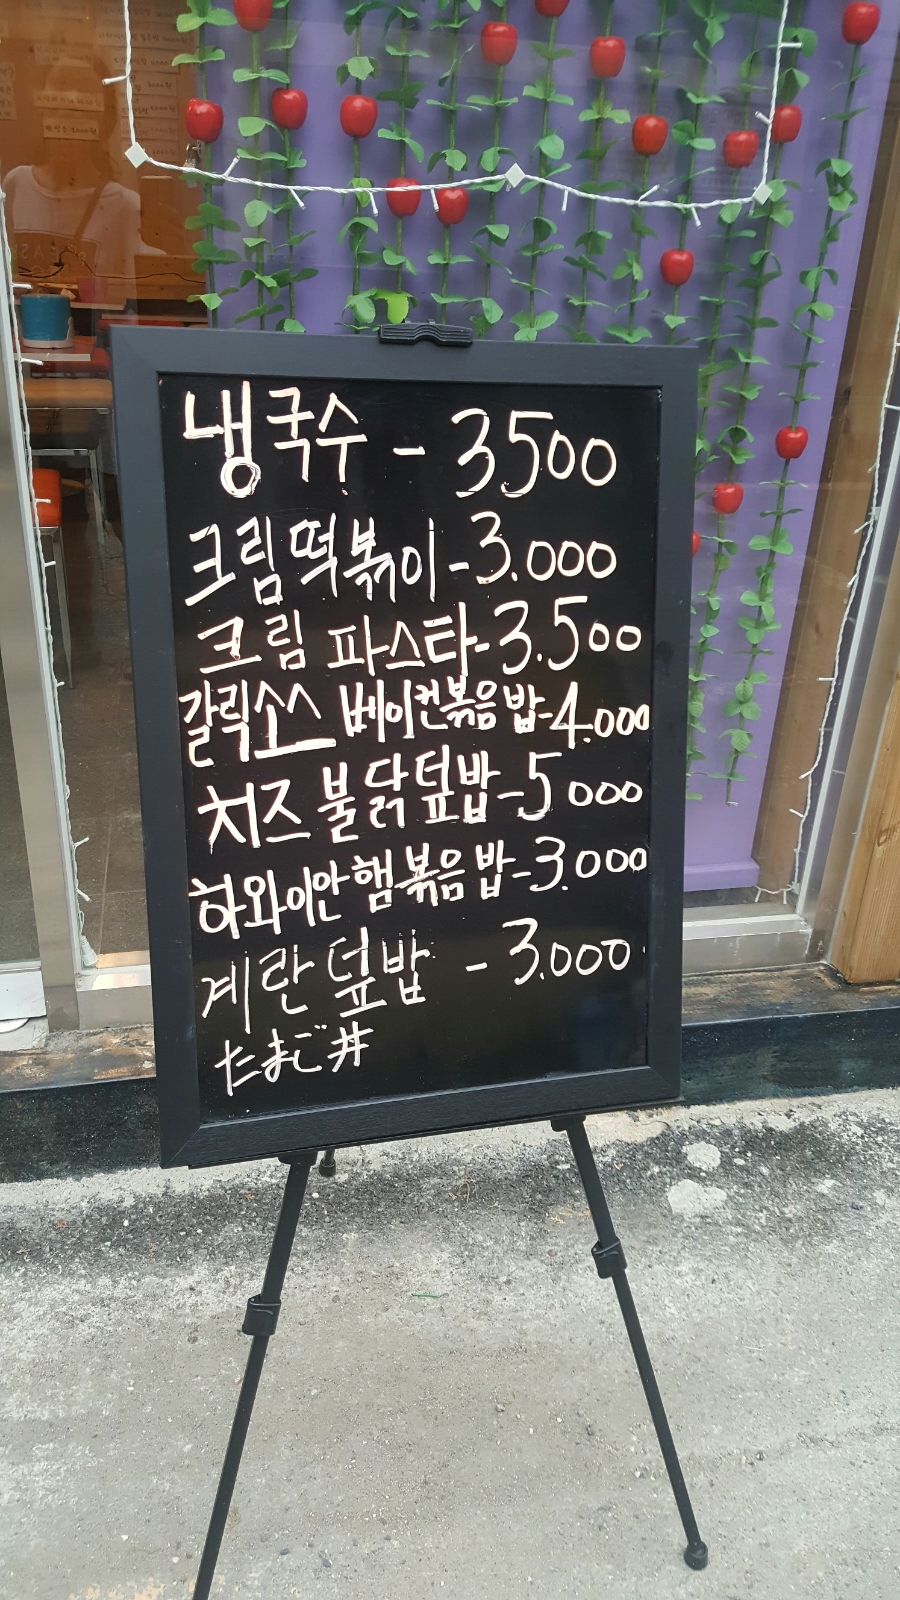 냉국수 - 3500
크림떡볶이-3.000
크림 파스타-3.500
갈릭소스 베이컨볶음밥-4.000
치즈불닭덮밥-5000
하와이안햄볶음밥-3.000
계란덮밥 - 3.000
たまご井